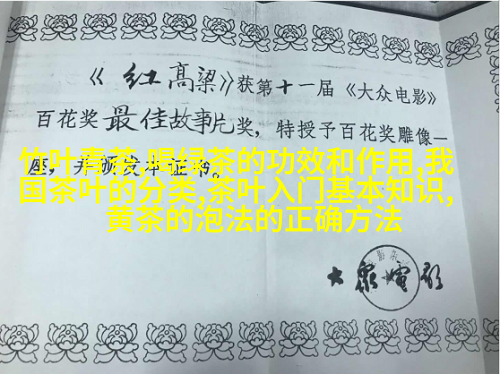 《红高粱》获第十一届《大众电影》
百花奖最佳故事片奖，特授予百花奖雕像一
座，并颁发本证书。
竹叶青茶,喝绿茶的功效和作用,我
国茶叶的分类,茶叶入门基本知识,
黄茶的泡法的正确方法
大众电影